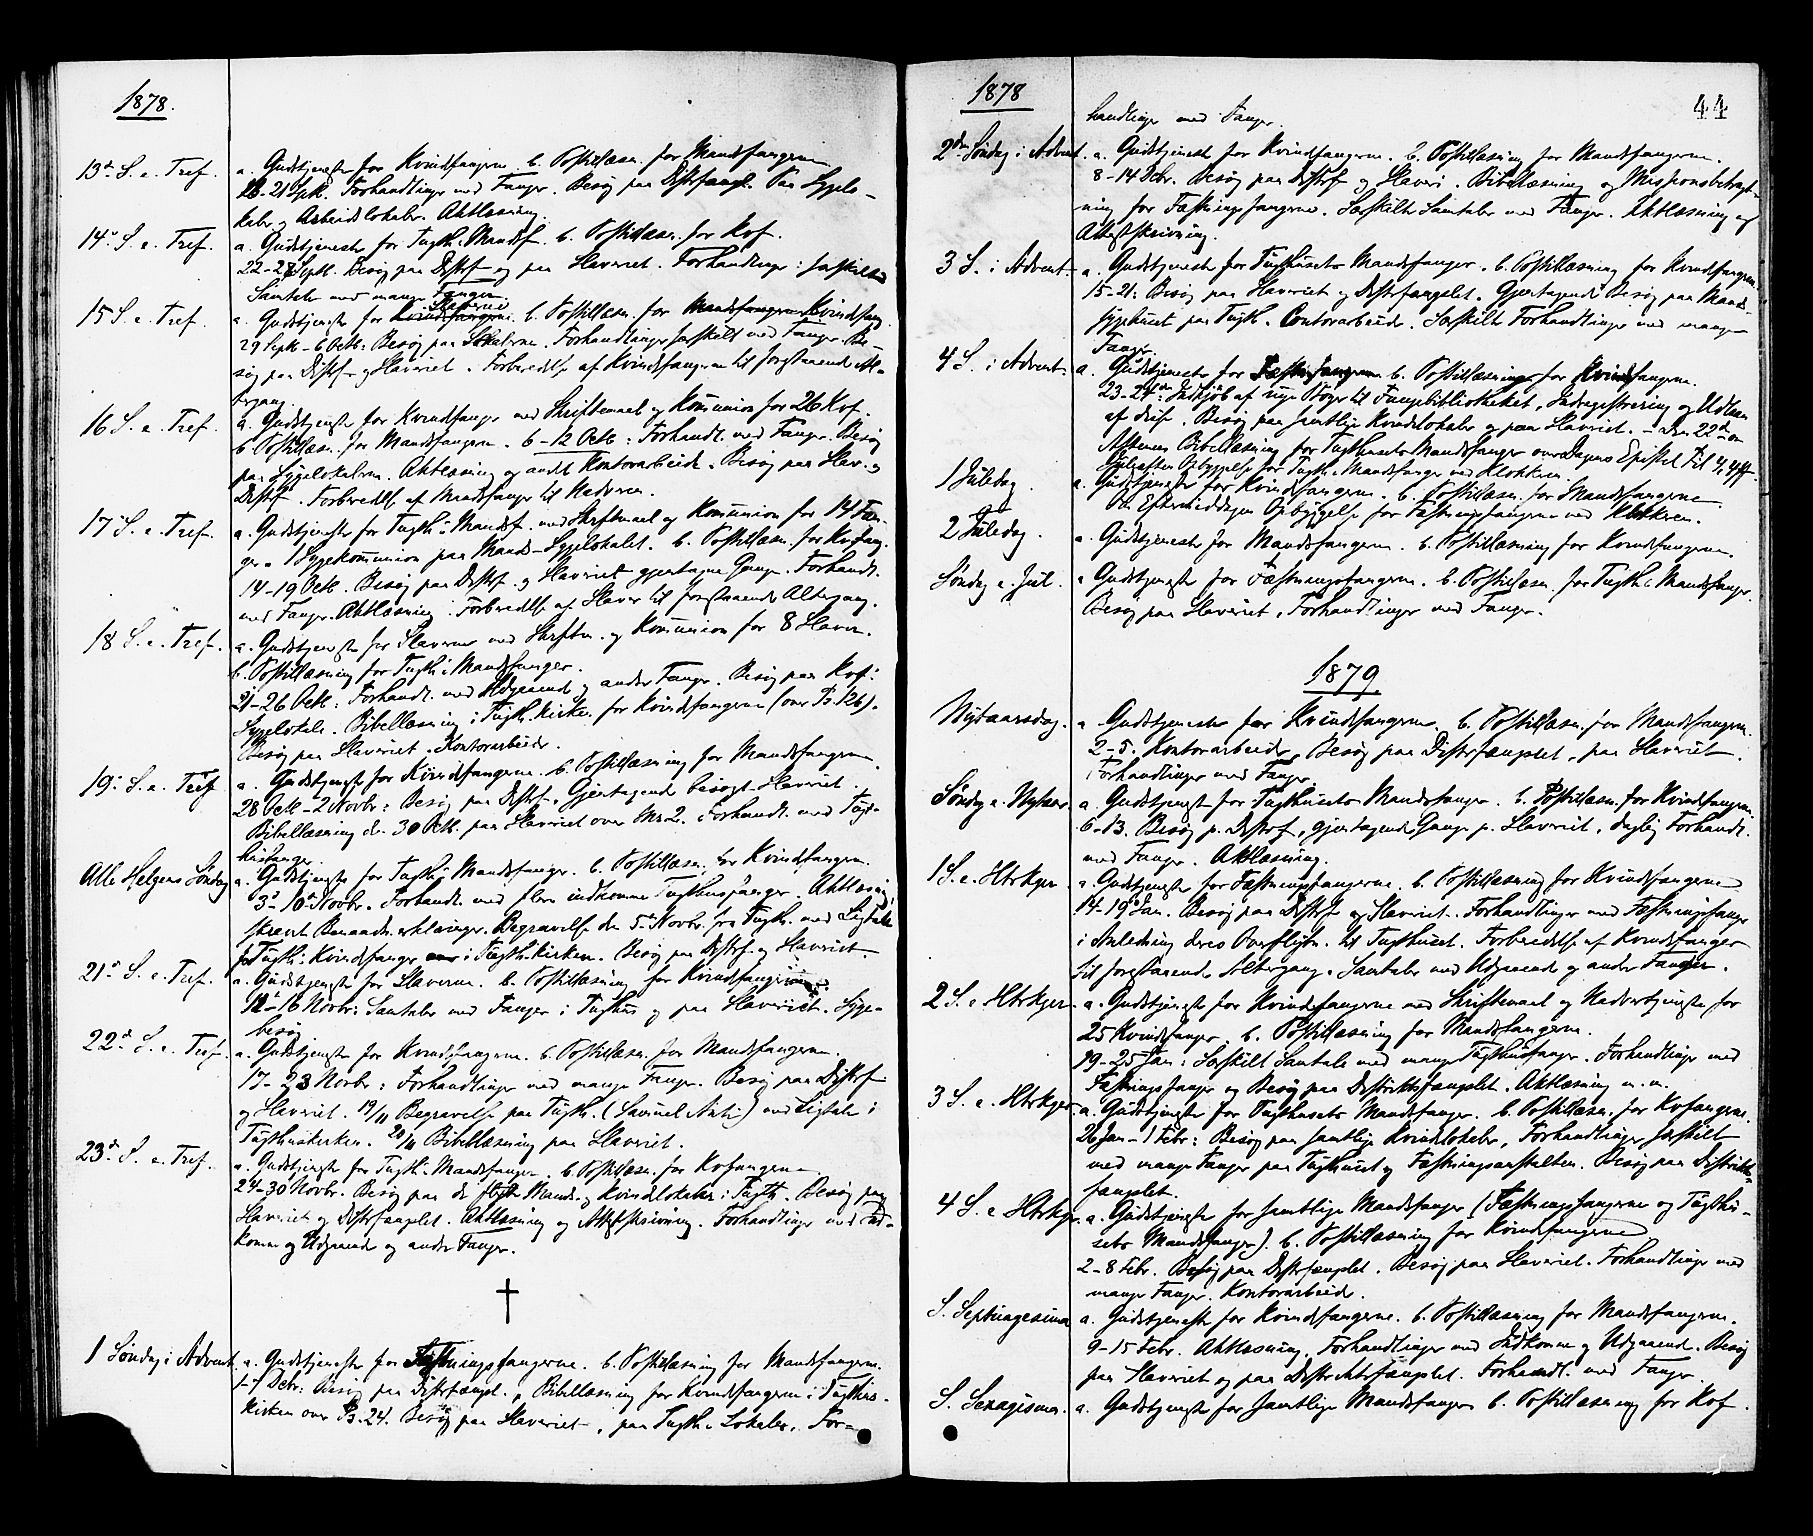 1878.
13de S. e. Tref. a. Gudstjeneste for Kvindefangerne b. Postillæsn. for Mandsfangerne
-21 Sept. Forhandlinger med Fanger. Besøg paa Distrfængsl. Paa Syge-
lokaler og Arbeidslokaler. Aktlæsning.
14de S. e. Tref. a. Gudstjeneste for Tugth. Mandsf. b. Postillæsn. for Kvf.
22-28 Sept. Besøg paa Distrf. og paa Slaveriet. Forhandlinger i særskilte
Samtaler med mange Fanger.
15 S. e. Tref. a. Gudstjeneste for Slaverne b. Postillæsn. for Kvindefang.
29 Sept.-6 Octb: Besøg paa Lokalerne. Forhandlinger særskilt med Fanger. Be-
søg paa Distrf. og Slaveriet. Forberedelse af Kvindefangerne til forestaaende Al-
tergang.
16 S. e. Tref. a. Gudstjeneste for Kvindefanger med Skriftemaal og Kommunion for 26 Kvf.
b. Postillæsn. for Mandsfangerne. 6-12 Octb: Forhandl. med Fanger. Besøg
paa Sygelokalerne. Aktlæsning og andet Kontorarbeide. Besøg paa Slav. og
Distrf. Forberedelse af Mandsfanger til Nadveren.
17de S. e. Tref. a. Gudstjeneste for Tugth. Mandsf. med Skriftemaal og Kommunion for 14 Fan-
ger. 1 Sygekommunion paa Mands-Sygelokalet. b. Postillæsn. for Kvfang.
14-19 Octb. Besøg paa Distrf. og Slaveriet gjentagne Gange. Forhandl.
med Fanger. Aktlæsning. Forberedelse af Slaver til forestaaende Altergang.
18 S. e. Tref. a. Gudstjeneste for Slaverne med Skriftem. og Kommunion for 8 Slaver.
b. Postillæsning for Tugth. Mandsfanger.
21-26 Octb. Forhandl. med Udgaaende og andre Fanger. Besøg paa Kvf.
Sygelokale. Bibellæsning i Tugth. Kirken for Kvindefangerne (over Ps. 126).
Besøg paa Slaveriet. Kontorarbeide.
19de S. e. Tref. a. Gudstjeneste for Kvindefangerne. b. Postillæsning for Mandsfangerne.
28 Octb-2 Novbr: Besøg paa Distrf. Gjentagende besøgt Slaveriet.
Bibellæsning den 30 Octb. paa Slaveriet over Mr 2. Forhandl. med Tugt-
husfanger.
Alle Helgens Søndag a. Gudstjeneste for Tugth. Mandsfanger. b. Postillæsn. for Kvindefangerne.
3-10de Novbr. Forhandl. med flere indkomne Tugthusfanger. Aktlæsning,
skrevet Benaadn.erklæringer. Begravelse den 5te Novbr. fra Tugth. med Ligtale
for Tugth. Kvindefanger i Tugth.kirken. Besøg paa Distrf. og Slaveriet.
21de S. e. Tref. a. Gudstjeneste for Slaverne. b. Postillæsning for Kvindefangerne
-16 Novbr: Samtaler med Fanger i Tugthus og paa Slaveriet. Syge-
besøg
22de S. e. Tref. a. Gudstjeneste for Kvindefangerne. b. Postillæsn. for Mandsfangerne.
17-23 Novbr: Forhandlinger med mange Fanger. Besøg paa Distrf
og Slaveriet. 19/11 Begravelse paa Tugth. () med Ligtale i
Tugthuskirken. 20/11 Bibellæsning paa Slaveriet.
23de S. e. Tref. a. Gudstjeneste for Tugth. Mandsfanger. b. Postillæsn. for Kvfangerne.
24-30 Novbr. Besøg paa de fleste Mands- og Kvindelokaler i Tugth. Besøg paa
Slaveriet og Distrfængslet. Aktlæsning og Attestskrivning. Forhandlinger med Ind-
komne og Udgaaende og andre Fanger.
†
1 Søndag i Advent a. Gudstjeneste for Fæstningsfangerne. b. Postillæsning for Mandsfangerne.
1-7 Decbr: Besøg paa Distrfængsl., Bibellæsning for Kvindefangerne i Tugthus-
kirken over Ps. 24. Besøg paa Slaveriet, paa Tugth. Lokaler. For-
1878
44
handlinger med Fanger.
2den Søndag i Advent. a. Gudstjeneste for Kvindefangerne. b. Postillæsning for Mandsfangerne.
8-14 Decbr. Besøg paa Distrf og Slaveri. Bibellæsning og Missionsbetragt-
ning for Fæstningsfangerne. Særskilte Samtaler med Fanger. Aktlæsning og
Attestskrivning.
3 S. i Advent. a. Gudstjeneste for Tugthusets Mandsfanger. b. Postillæsning for Kvindefangerne
15-21: Besøg paa Slaveriet og Distrfængslet. Gjentagende Besøg paa Mands-
sygehuset paa Tugth. Contorarbeide. Særskilt Forhandlinger med mange
Fanger.
4 S. i Advent. a. Gudstjeneste for Fæstnfangerne b. Postillæsning for Kvindefangerne.
23-24de: Indkjøb af nye Bøger til Fangebibliotheket, Indregistrering og Udlaan
af disse. Besøg paa samtlige Kvindelokaler og paa Slaveriet. - den 22de om
Aftenen Bibellæsning for Tugthusets Mandsfanger over Dagens Epistel Fil 4, 4ff.
Juleaften Opbyggelse for Tugth. Mandsfanger ved Klokkeren.
1 Juledag. a. Gudstjeneste for Kvindefangerne. b. Postillæsn. for Mandsfangerne
Om Eftermiddagen Opbyggelse for Fæstningsfangerne ved Klokkeren.
2 Juledag. a. Gudstjeneste for Mandsfangerne. b. Postillæsning for Kvindefangerne.
Søndag e. Jul. a. Gudstjeneste for Fæstningsfangerne. b. Postillæsn. for Tugth. Mandsfanger.
Besøg paa Slaveriet. Forhandlinger med Fanger.
1879
Nytaarsdag. a. Gudstjeneste for Kvindefangerne. b. Postillæsn. for Mandsfangerne.
2-5. Kontorarbeide, Besøg paa Distrfængslet, paa Slaveriet.
Forhandlinger med Fanger.
Søndag e. Nytaar a. Gudstjeneste for Tugthusets Mandsfanger. b. Postillæsn. for Kvindefangerne.
6-13. Besøg p. Distrf, gjentagende Gange p. Slaveriet, daglig Forhandl.
med Fanger. Aktlæsning.
1 S. e. Htrkgr. a. Gudstjeneste for Fæstningsfangerne. b. Postillæsning for Kvindefangerne
14-19 Jan. Besøg paa Distrf og Slaveriet. Forhandlinger med Fæstningsfanger
i Anledning deres Overflytn. til Tugthuset. Forberedelse af Kvindefanger
til forestaaende Altergang. Samtaler med Udgaaende og andre Fanger.
2 S. e Htrkgr. a. Gudstjeneste for Kvindefangerne med Skriftemaal og Nadvertjeneste for
25 Kvindefanger b. Postillæsning for Mandsfangerne.
19-25 Jan: Særskilt Samtale med mange Tugthusfanger. Forhandlinger med
Fæstningsfanger og Besøg paa Distriktsfængslet. Aktlæsning m. m.
3 S. e. Htrkgr. a. Gudstjeneste for Tugthusets Mandsfanger. b. Postillæsn. for Kvfangerne.
26 Jan-1 Febr: Besøg paa samtlige Kvindelokaler, Forhandlinger særskilt
med mange Fanger paa Tugthuset og Fæstningsanstalten. Besøg paa Distrikts-
fængslet.
4 S. e Htrkgr. a. Gudstjeneste for samtlige Mandsfanger (Fæstningsfangerne og Tugthu-
sets Mandsfanger). b. Postillæsning for Kvindefangerne
2-8 Febr. Besøg paa Distrfængslet. Besøg paa Slaveriet. Forhandlinger med
mange Fanger. Kontorarbeide.
S. Septuagesima a. Gudstjeneste for Kvindefangerne. b. Postillæsning for Mandsfangerne.
9-15 Febr. Aktlæsning, Forhandlinger med Indkomne og Udgaaende. Besøg
paa Slaveriet og paa Distriktsfængslet. Forhandl. med Fanger.
S. Sexagesima. a. Gudstjeneste for samtlige Mandsfanger b. Postillæsning for Kvf.